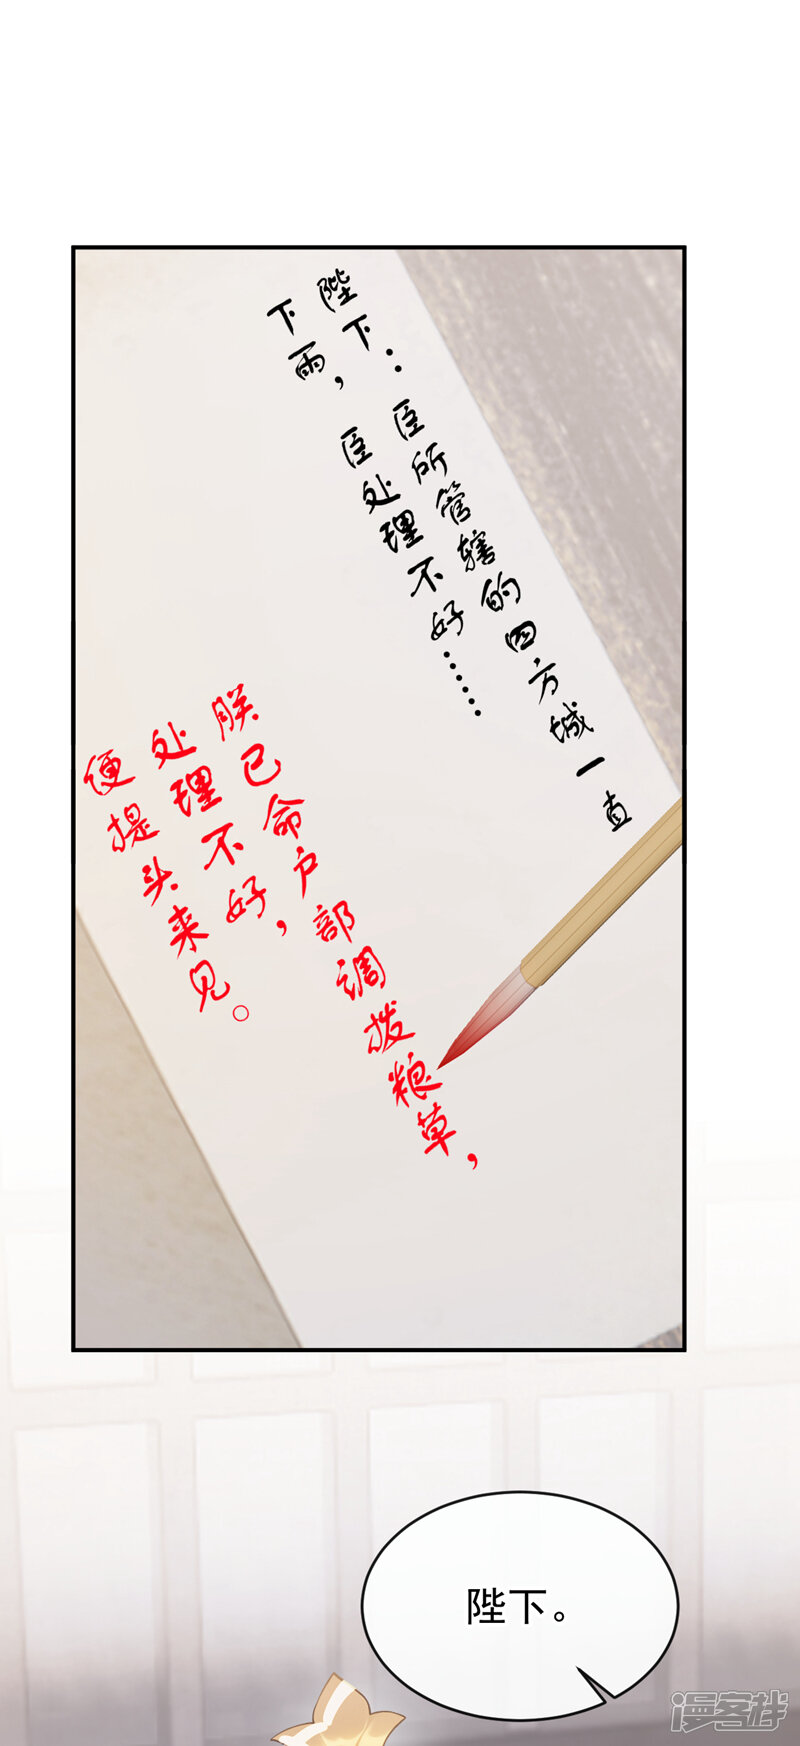 陛下：臣所管辖的四方城一直
下雨，臣处理不好……
朕已命户部调拨粮草，
处理不好，
便提头来见。
陛下。
漫客栈